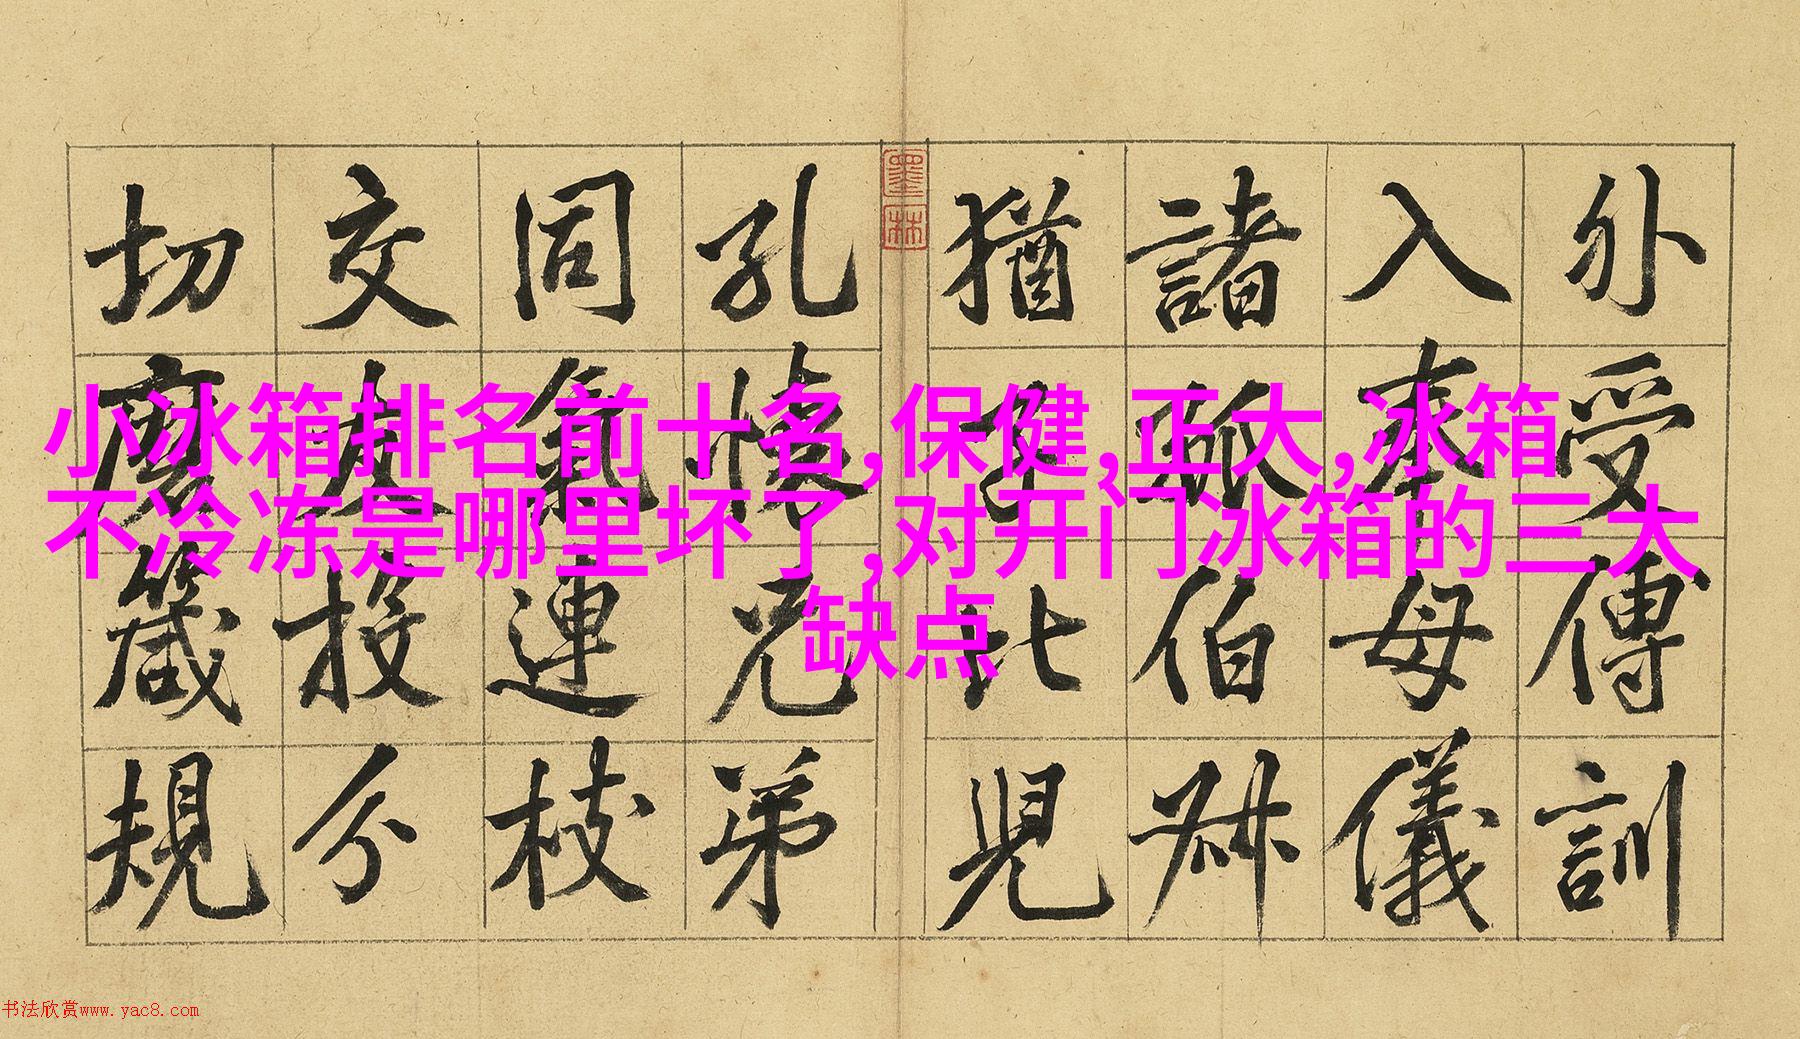 外受傳訓
入奉母儀
諸姑伯叔
猶子比兒
孔懷兄弟
同氣連枝
交友投分
切磨箴規
墨林
小冰箱排名前十名,保健,正大,冰箱
不冷冻是哪里坏了,对开门冰箱的三大
缺点
书法欣赏www.yac8.com